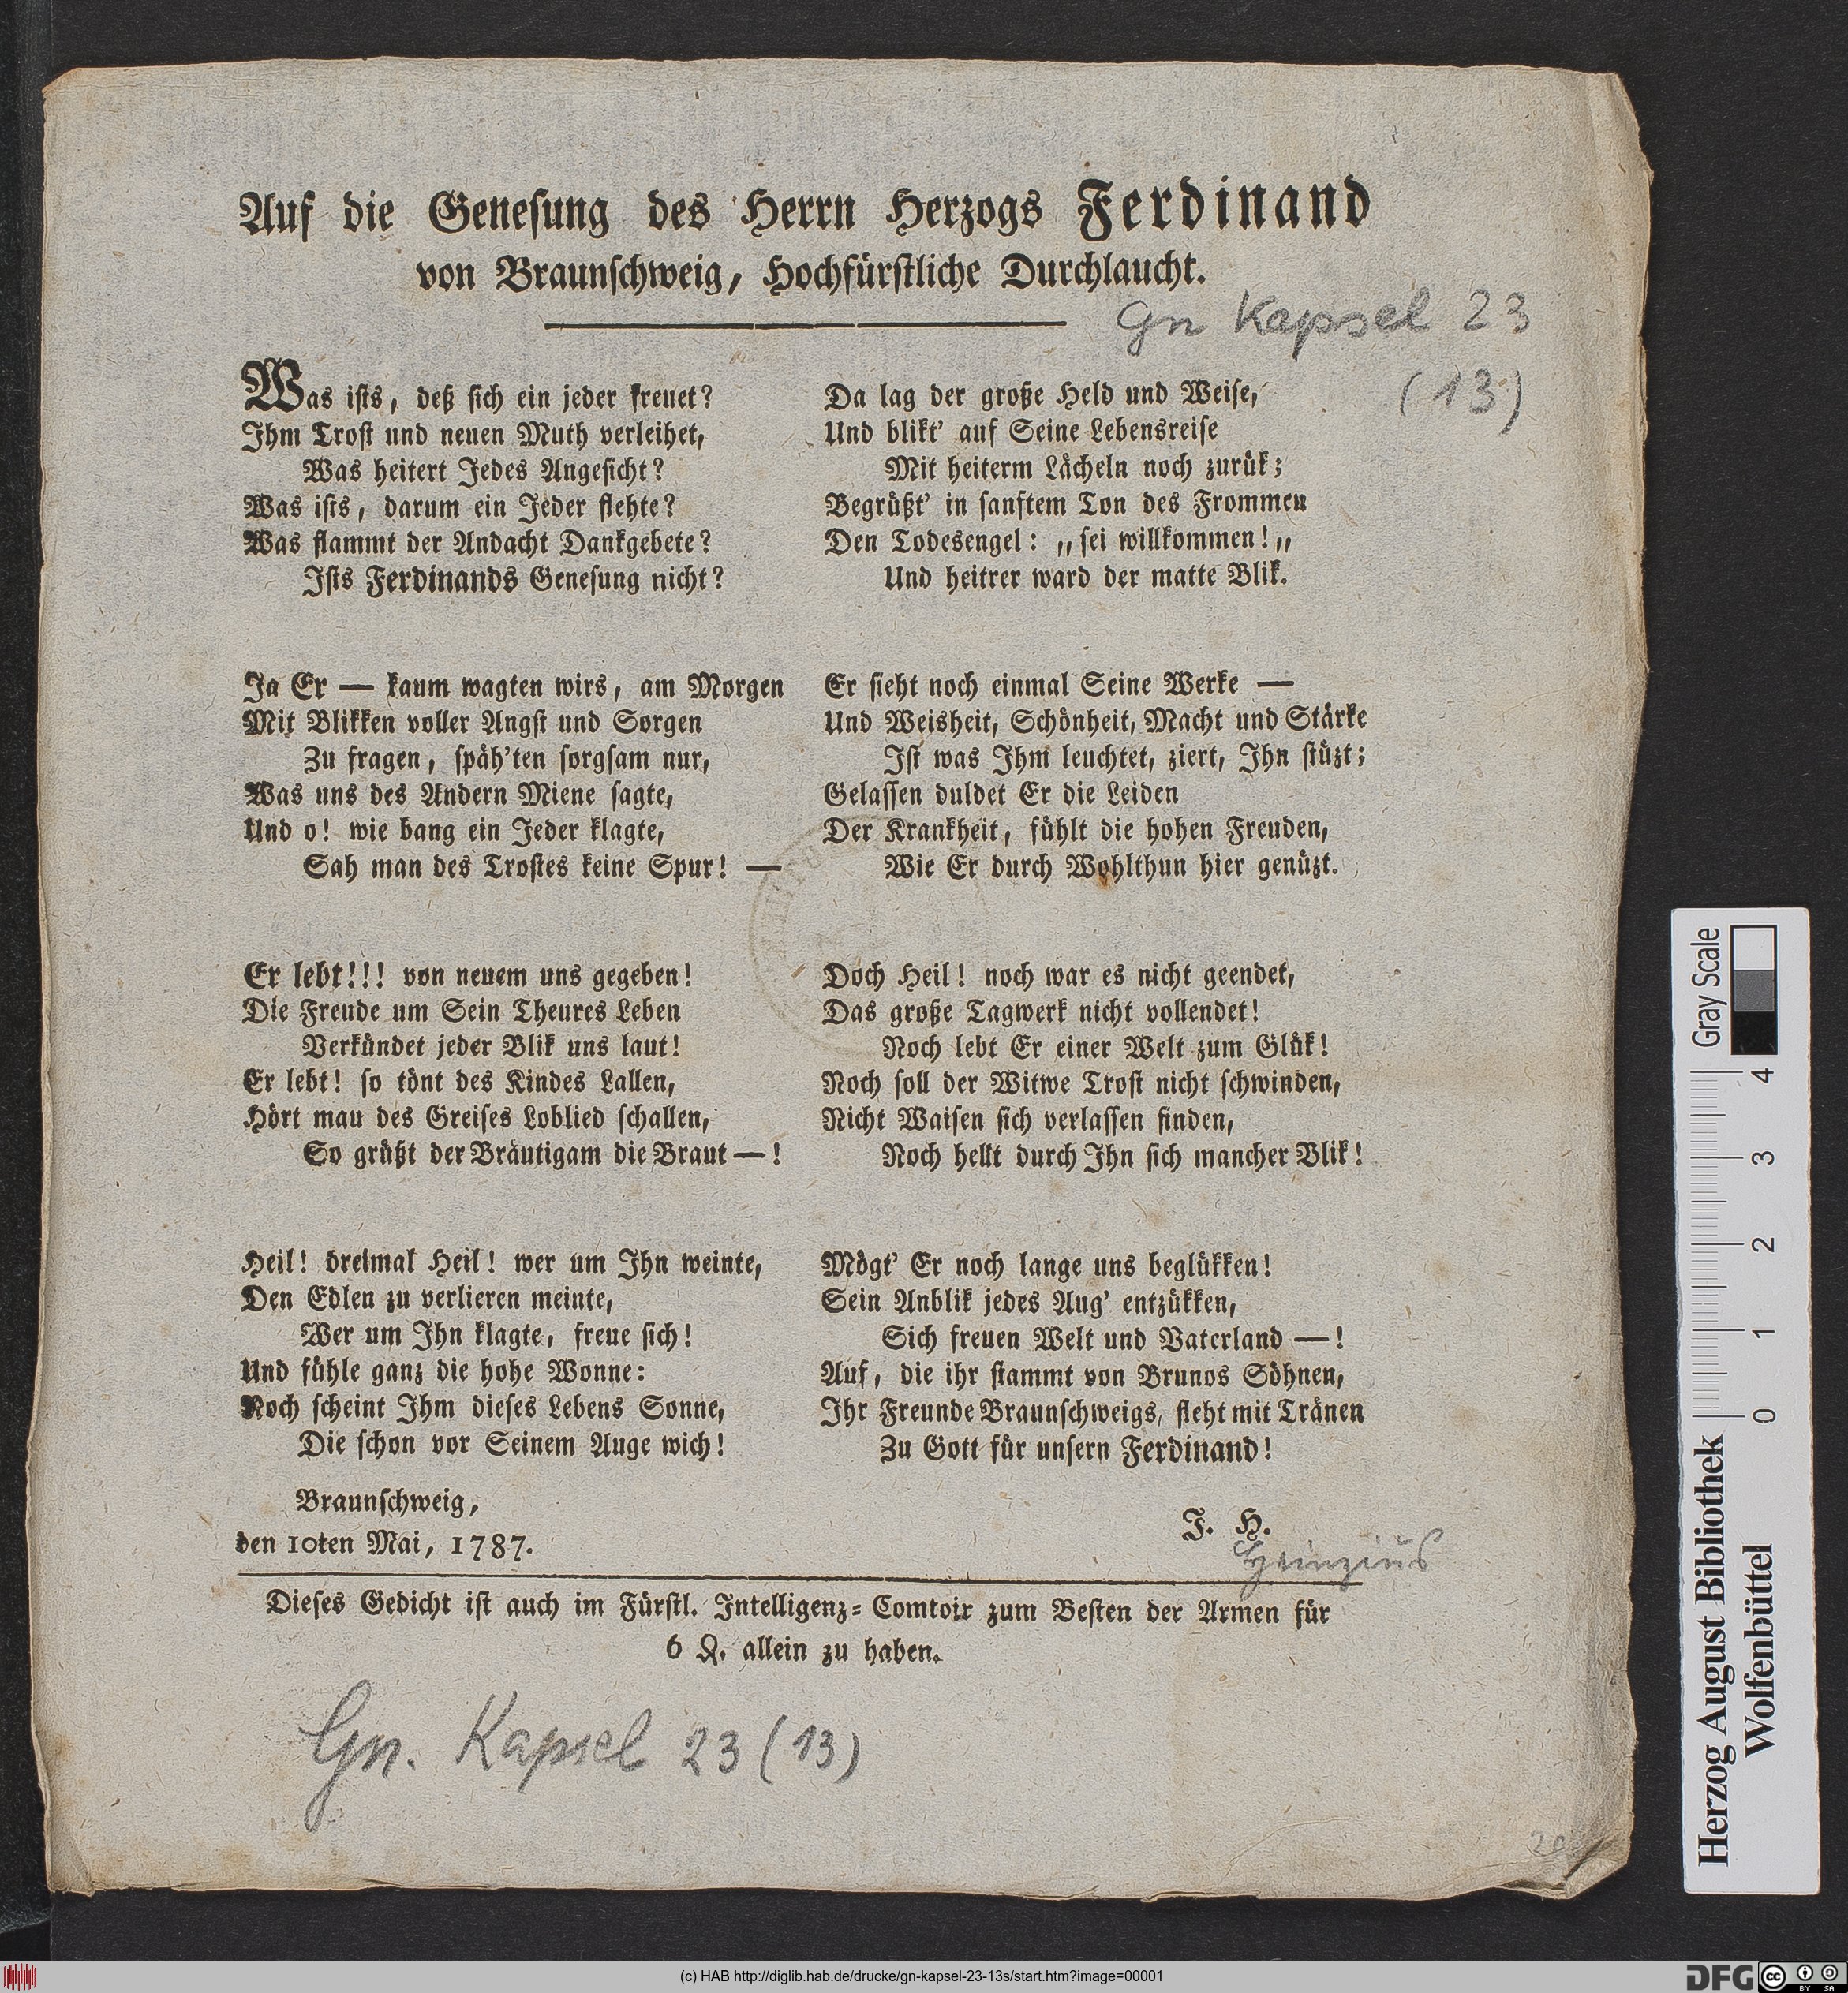 Auf die Geneſung des Herrn Herzogs Ferdinand
von Braunſchweig, Hochfürſtliche Durchlaucht.
Gn Kapsel 23
(13)
Was iſts, deß ſich ein jeder freuet?
Ihm Troſt und neuen Muth verleihet,
Was heitert Jedes Angeſicht?
Was iſts, darum ein Jeder flehte?
Was flammt der Andacht Dankgebete?
Iſts Ferdinands Geneſung nicht?
Ja Er — kaum wagten wirs, am Morgen
Mit Blikken voller Angſt und Sorgen
Zu fragen, ſpäh'ten ſorgſam nur,
Was uns des Andern Miene ſagte,
Und o! wie bang ein Jeder klagte,
Sah man des Troſtes keine Spur! —
Er lebt!!! von neuem uns gegeben!
Die Freude um Sein Theures Leben
Verkündet jeder Blik uns laut!
Er lebt! ſo tönt des Kindes Lallen,
Hört mau des Greiſes Loblied ſchallen,
So grüßt der Bräutigam die Braut —!
Heil! dreimal Heil! wer um Ihn weinte,
Den Edlen zu verlieren meinte,
Wer um Ihn klagte, freue ſich!
Und fühle ganz die hohe Wonne:
Noch ſcheint Ihm dieſes Lebens Sonne,
Die ſchon vor Seinem Auge wich!
Da lag der große Held und Weiſe,
Und blikt' auf Seine Lebensreiſe
Mit heiterm Lächeln noch zurük;
Begrüßt' in ſanftem Ton des Frommen
Den Todesengel: „ſei willkommen!„
Und heitrer ward der matte Blik.
Er ſieht noch einmal Seine Werke —
Und Weisheit, Schönheit, Macht und Stärke
Iſt was Ihm leuchtet, ziert, Ihn ſtüzt;
Gelaſſen duldet Er die Leiden
Der Krankheit, fühlt die hohen Freuden,
Wie Er durch Wohlthun hier genüzt.
Doch Heil! noch war es nicht geendet,
Das große Tagwerk nicht vollendet!
Noch lebt Er einer Welt zum Glük!
Noch ſoll der Witwe Troſt nicht ſchwinden,
Nicht Waiſen ſich verlaſſen finden,
Noch hellt durch Ihn ſich mancher Blik!
Mögt' Er noch lange uns beglükken!
Sein Anblik jedes Aug' entzükken,
Sich freuen Welt und Vaterland —!
Auf, die ihr ſtammt von Brunos Söhnen,
Ihr Freunde Braunſchweigs, fleht mit Tränen
Zu Gott für unſern Ferdinand!
Braunſchweig,
den 10ten Mai, 1787.
J. H.
Heinzius
Dieſes Gedicht iſt auch im Fürſtl. Intelligenz-Comtoir zum Beſten der Armen für
6 ₰. allein zu haben.
Gn. Kapsel 23 (13)
Gray Scale
0 1 2 3 4
Herzog August Bibliothek
Wolfenbüttel
(c) HAB http://diglib.hab.de/drucke/gn-kapsel-23-13s/start.htm?image=00001
DFG
cc BY SA